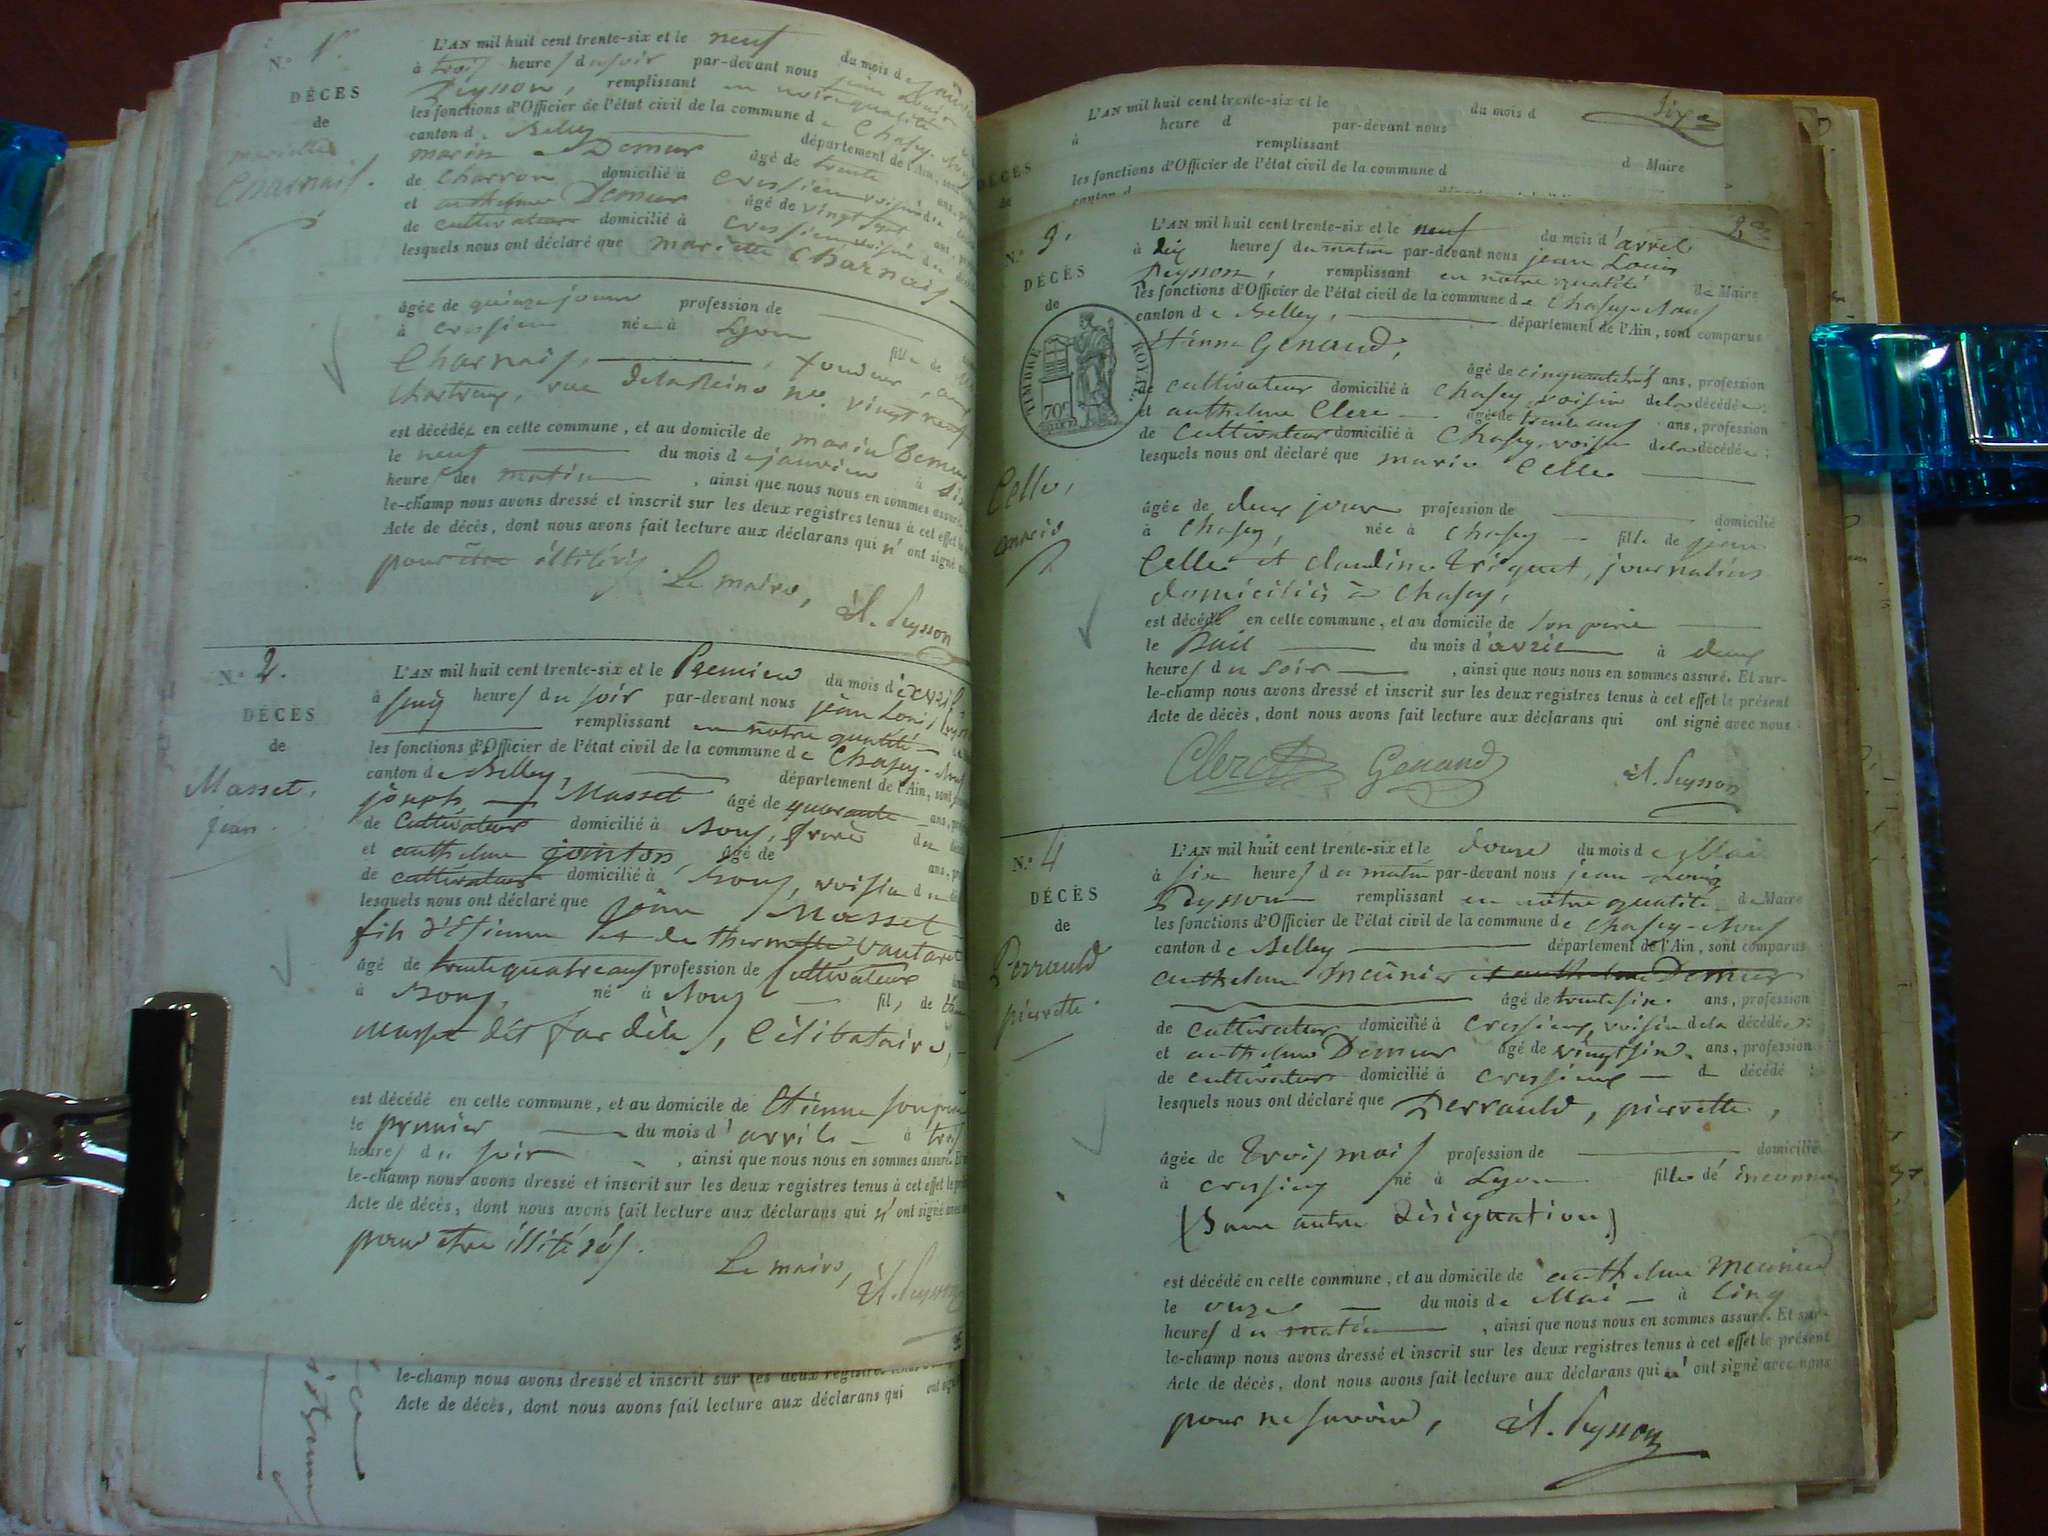 N.° 1er
DÉCÈS
de
mariette
Charnais.
L'AN mil huit cent trente-six et le neuf du mois de
à trois heures du soir par-devant nous jean Louis
Peysson, remplissant en notre qualité
les fonctions d'Officier de l'état civil de la commune de Chasey-
canton de Belley département de l'Ain, sont
marin Demur âgé de trente ans,
de charron domicilié à Cressieu voisin de
et anthelme Demur âgé de vingt sept ans,
de cultivateur domicilié à Cressieu voisin de
lesquels nous ont déclaré que mariette Charnais
âgée de quinze jours profession de
à Cressieu née à Lyon fille de
Charnais, fondeur, aux
Chartreux, rue de la Reine n.° vingt neuf
est décédée en cette commune, et au domicile de marin Demur
le neuf du mois de janvier à
heures de matin, ainsi que nous nous en sommes assuré.
le-champ nous avons dressé et inscrit sur les deux registres tenus à cet effet
Acte de décès, dont nous avons fait lecture aux déclarans qui n'ont signé
pour être illitérés. Le maire,
Jl. Peysson
N.° 2.
DÉCÈS
de
Masset,
jean.
L'AN mil huit cent trente-six et le Premier du mois d'avril
à cinq heures du soir par-devant nous jean Louis
remplissant en notre qualité
les fonctions d'Officier de l'état civil de la commune de Chasey-
canton de Belley, département de l'Ain, sont
joseph Masset âgé de quarante ans,
de Cultivateur domicilié à Bons, frère du
et anthelme jointon, âgé de ans,
de cultivateur domicilié à Bons, voisin du
lesquels nous ont déclaré que jean Masset
fils d'Etienne et de thermette Vautaret
âgé de trente quatre ans profession de Cultivateur
à Bons, né à Bons fils de
Masset dit fardèle, Célibataire,
est décédé en cette commune, et au domicile de Etienne son père
le premier du mois d'avril à trois
heures du soir, ainsi que nous nous en sommes assuré. Et
le-champ nous avons dressé et inscrit sur les deux registres tenus à cet effet le
Acte de décès, dont nous avons fait lecture aux déclarans qui n'ont signé
pour etre illitérés.
Le maire,
Jl. Peysson
le-champ nous avons dressé et inscrit sur les deux registres
Acte de décès, dont nous avons fait lecture aux déclarans qui ont
L'AN mil huit cent trente-six et le du mois d
à heure d par-devant nous
remplissant
les fonctions d'Officier de l'état civil de la commune d d Maire
canton d
DÉCÈS
de
N.° 3.
DÉCÈS
de
TIMBRE ROYAL
70c
Celle,
marie
L'AN mil huit cent trente-six et le neuf du mois d'avril
à dix heures du matin par-devant nous jean Louis
Peysson, remplissant en notre qualité de Maire
les fonctions d'Officier de l'état civil de la commune de Chasey-Bons
canton de Belley, département de l'Ain, sont comparus
Etienne Genaud,
âgé de cinquante huit ans, profession
de cultivateur domicilié à Chasey, voisin de la décédée;
et anthelme Clerc âgé de trente neuf ans, profession
de Cultivateur domicilié à Chasey, voisin de la décédée;
lesquels nous ont déclaré que marie Celle
âgée de deux jours profession de domicilié
à Chasey, née à Chasey fille de jean
Celle et claudine triquet, journaliers
domiciliés à Chasey,
est décédé en cette commune, et au domicile de son père
le huit du mois d'avril à deux
heures du soir, ainsi que nous nous en sommes assuré. Et sur-
le-champ nous avons dressé et inscrit sur les deux registres tenus à cet effet le présent
Acte de décès, dont nous avons fait lecture aux déclarans qui ont signé avec nous.
Clerc Genaud Jl. Peysson
N.° 4
DÉCÈS
de
Perrauld
pierrette.
L'AN mil huit cent trente-six et le douze du mois de Mai
à six heures du matin par-devant nous jean Louis
Peysson remplissant en notre qualité de Maire
les fonctions d'Officier de l'état civil de la commune de Chasey-Bons
canton de Belley département de l'Ain, sont comparus
anthelme meunier et anthelme Demur
âgé de trente six ans, profession
de cultivateur domicilié à Cressieu, voisin de la décédée;
et anthelme Demur âgé de vingt six ans, profession
de cultivateur domicilié à Cressieu d décédé ;
lesquels nous ont déclaré que Perrauld, pierrette,
âgée de trois mois profession de domicilié
à Cressieu né à Lyon fille de inconnu
(Sans autre désignation)
est décédé en cette commune, et au domicile de anthelme meunier
le onze du mois de Mai à cinq
heures du matin, ainsi que nous nous en sommes assuré. Et sur-
le-champ nous avons dressé et inscrit sur les deux registres tenus à cet effet le présent
Acte de décès, dont nous avons fait lecture aux déclarans qui n'ont signé avec nous
pour ne savoir, Jl. Peysson